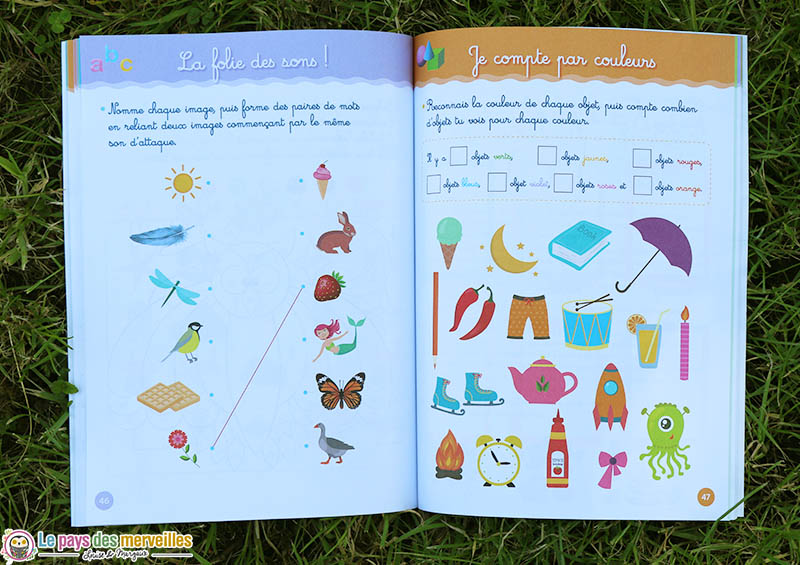 abc
La folie des sons !
Nomme chaque image, puis forme des paires de mots
en reliant deux images commençant par le même
son d'attaque.
46
Je compte par couleurs
Reconnais la couleur de chaque objet, puis compte combien
d'objets tu vois pour chaque couleur.
Il y a objets verts, objets jaunes, objets rouges,
objets bleus, objet violet, objets roses et objets orange.
Book
47
Le pays des merveilles